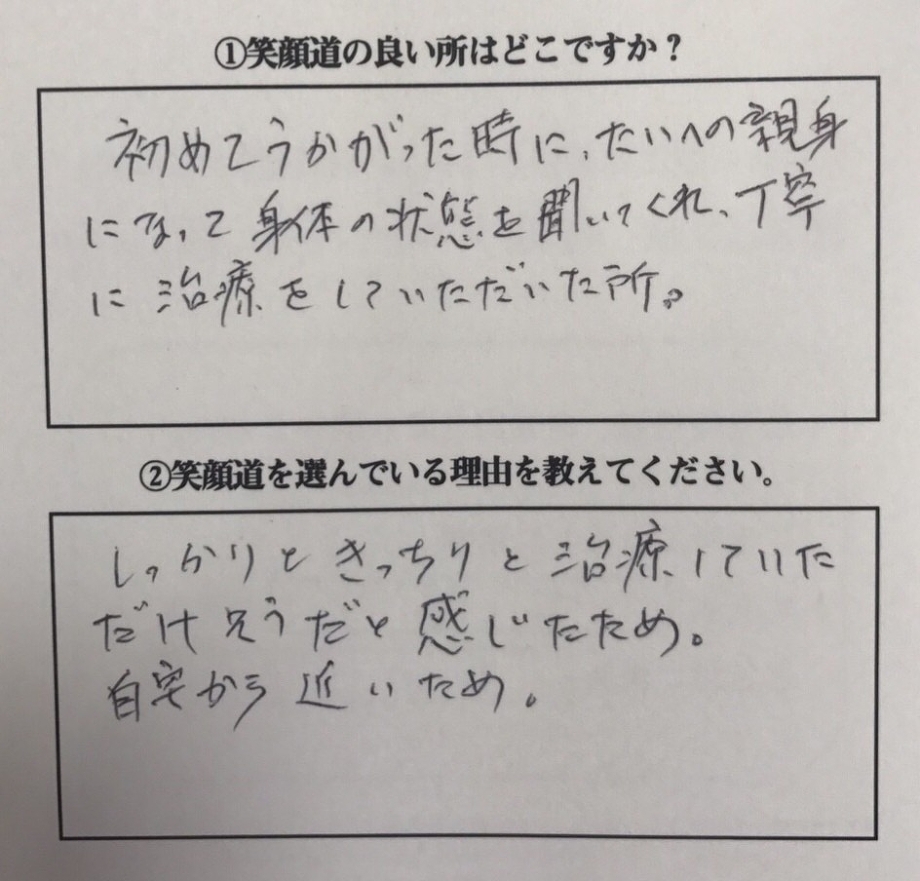 ①笑顔道の良い所はどこですか？
初めてうかがった時に、たいへの親身
になって身体の状態を聞いてくれ、丁寧
に治療をしていただいた所。
②笑顔道を選んでいる理由を教えてください。
しっかりときっちりと治療していた
だけそうだと感じたため。
自宅から近いため。